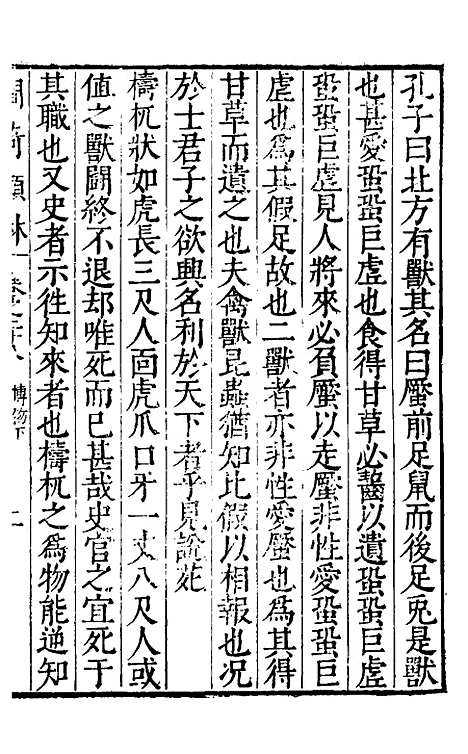 孔子曰北方有獸其名曰蟨前足鼠而後足兎是獸
也甚愛蛩蛩巨虛也食得甘草必齧以遺蛩蛩巨虛
蛩蛩巨虛見人將來必負蟨以走蟨非性愛蛩蛩巨
虛也爲其假足故也二獸者亦非性愛蟨也爲其得
甘草而遺之也夫禽獸昆蟲猶知比假以相報也况
於士君子之欲興名利於天下者乎見說苑
檮杌狀如虎長三尺人面虎爪口牙一丈八尺人或
值之獸鬭終不退却唯死而已甚哉史官之宜死于
其職也又史者示徃知來者也檮杌之爲物能逆知
卷之二十八 博物下 二